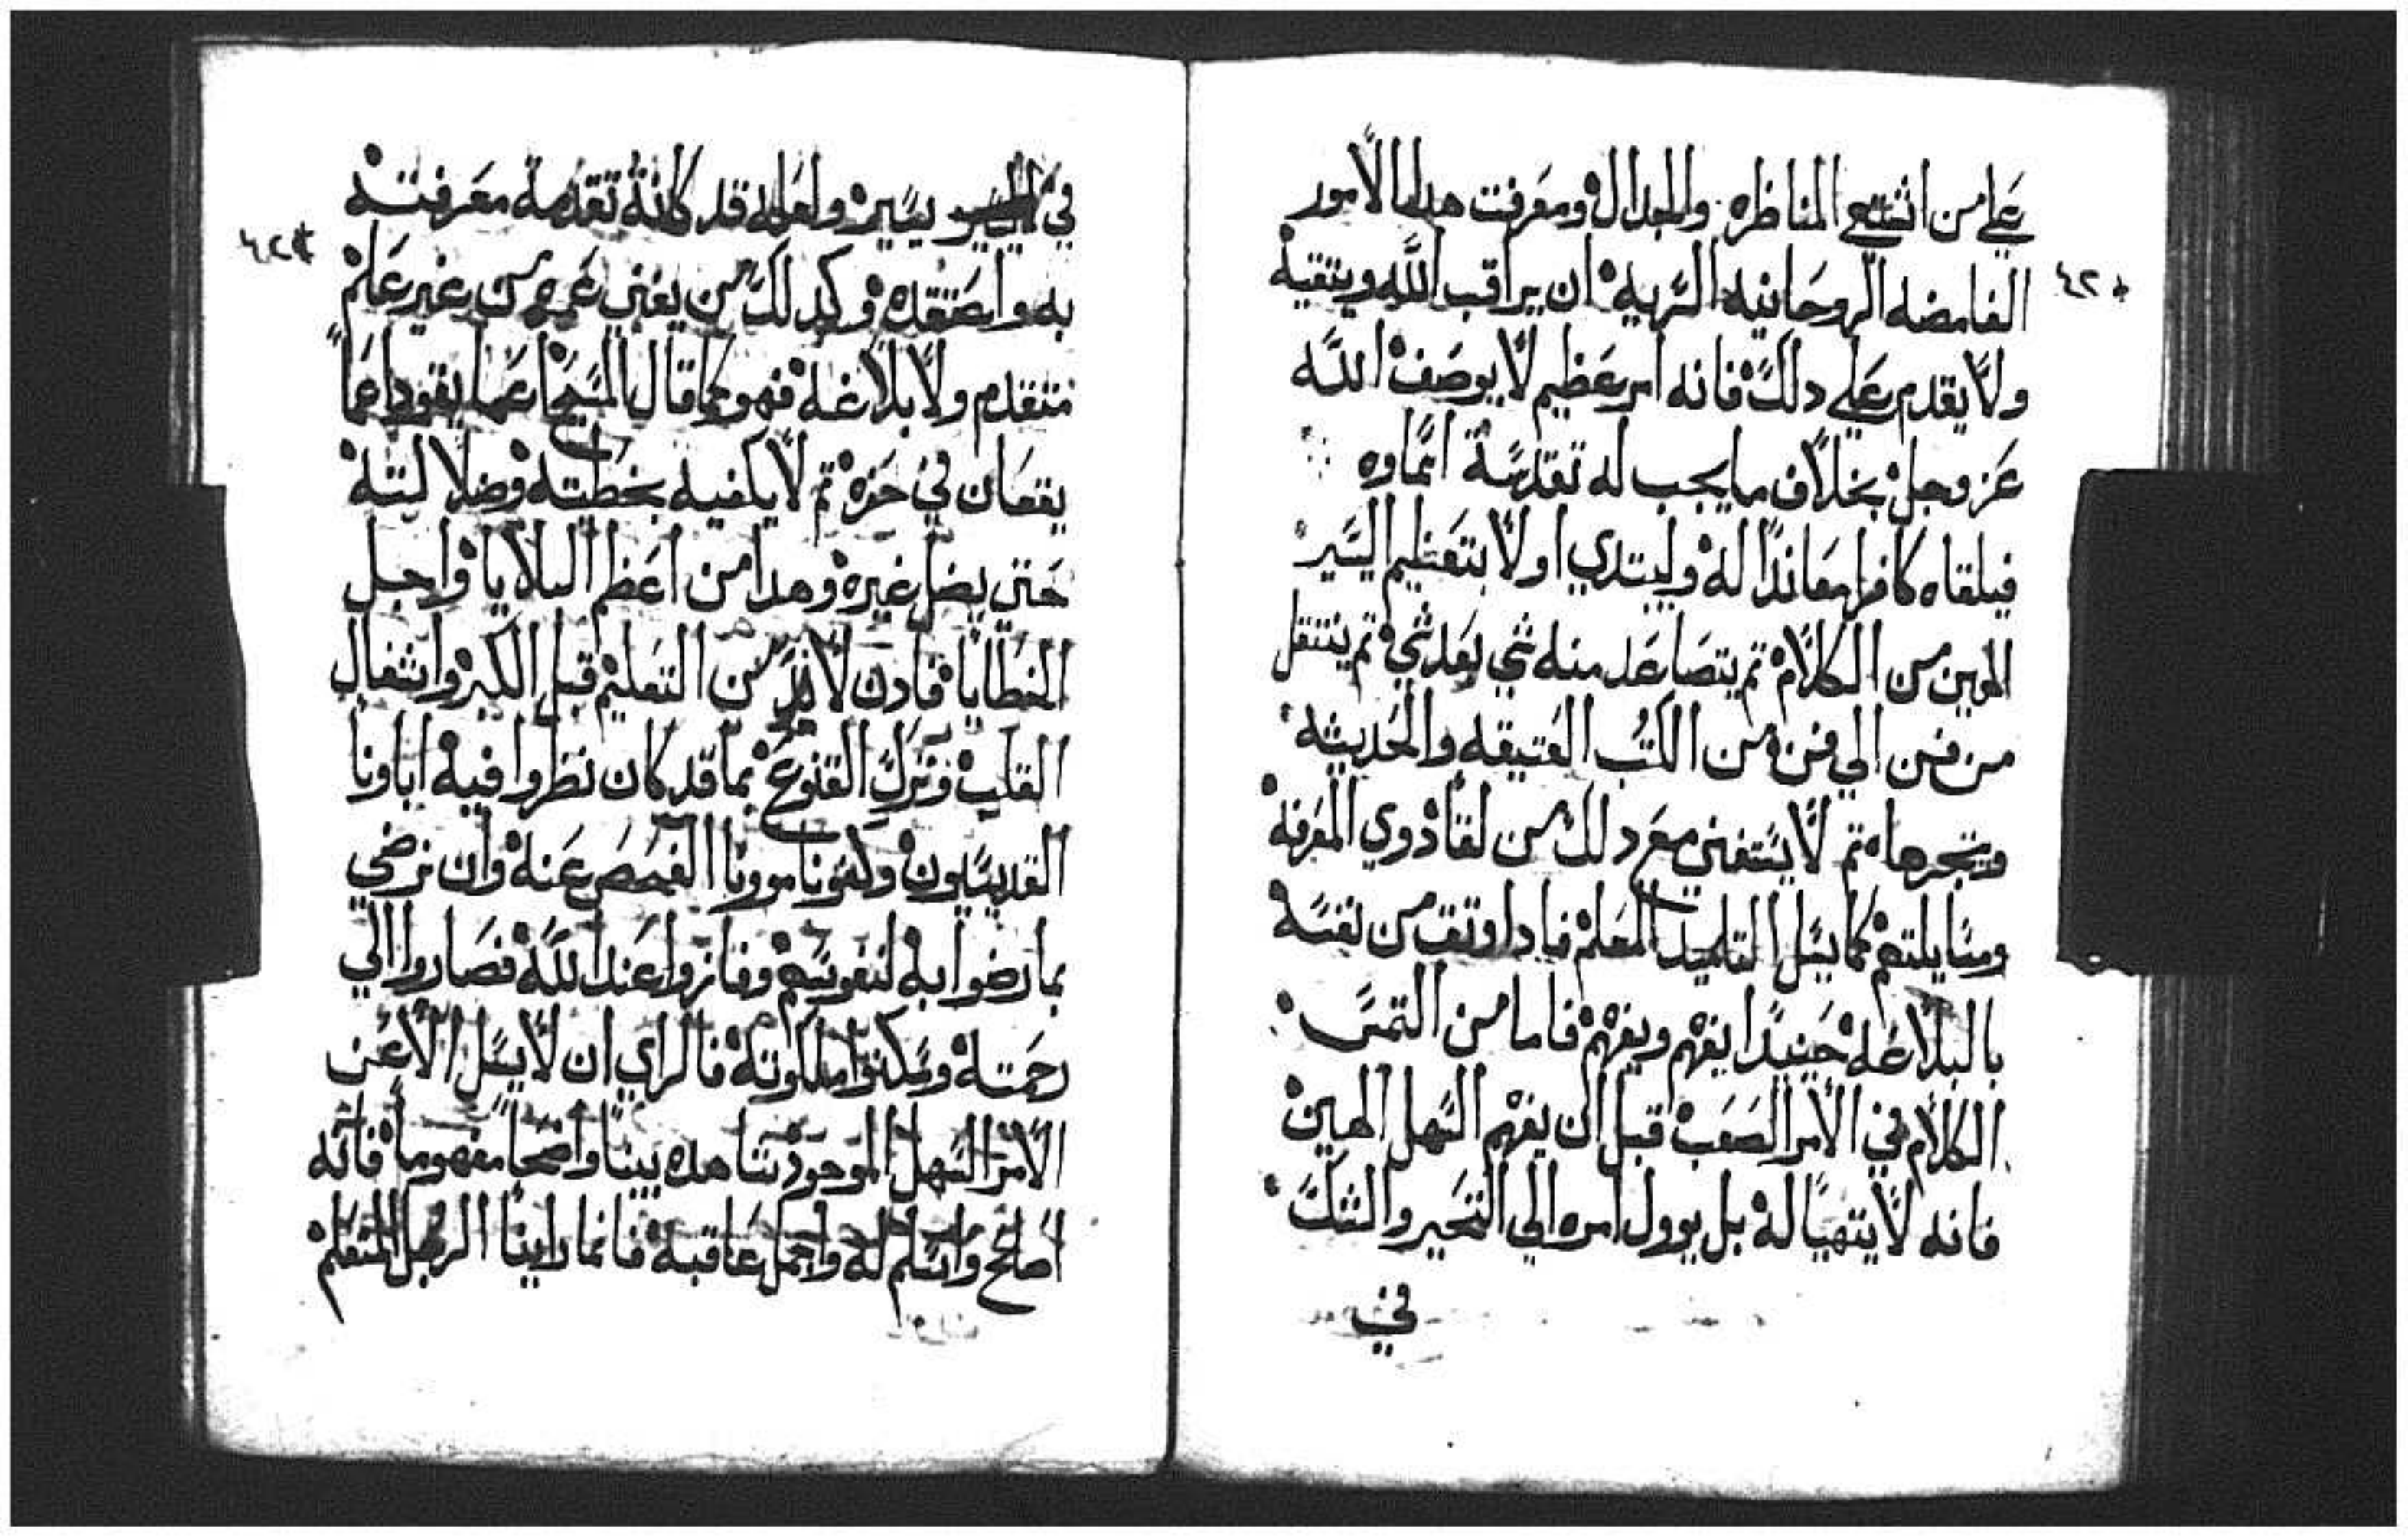 علي من اشتهي المناظره والجدال ومعرفت هده الامور
الغامضه الروحانيه السريه ان يراقب الله ويتقيه
ولا يقدم علي دلك فانه امر عظيم لا يوصف الله
عز وجل بخلاف ما يجب له تقدسة اسماوه
فيلقاه كافرا معاندا له وليبتدي اولا بتعظيم اليسير
الهين من الكلام تم يتصاعد منه شي بعد شي تم ينتقل
من فن الي فن من الكتب العتيقه والحديثه
ويتبحرها تم لا يستغني مع دلك من لقا دوي المعرفه
ومسايلتهم كما يسل التلميد المعلم فادا وتق من نفسه
بالبلاغه حينيدا يفهم ويفهم فاما من التمس
الكلام في الامر الصعب قبل ان يفهم السهل الهين
فانه لا يتهيا له بل يوول امره الي التحير والشك
في
في يسيره ولعله قد كانة تقدمة معرفته
به واعتقده وكدلك من يفتي غيره من غير علم
متقدم ولا بلاغه فهو كما قال المسيح اعما يقود اعما
يقعان في حفره تم لا يكفيه بخطيته وضلالته
حتي يضل غيره وهدا من اعظم البلايا واجل
الخطايا فادن لابد من التعليم قبل الكبر واشغال
القلب وترك القنوع بما قد كان نظروا فيه اباونا
القديسون وكفونا موونا الفحص عنه وان نرضي
بما رضوا به لنفوسهم وفازوا عند الله فصاروا الي
رحمته وسكنوا ملكوته فالراي ان لا يسل الا عن
الامر السهل الموجود بينا واضحا مفهوما فانه
اصلح واسلم له واجمل عاقبه فانما راينا الرجل المتعلم